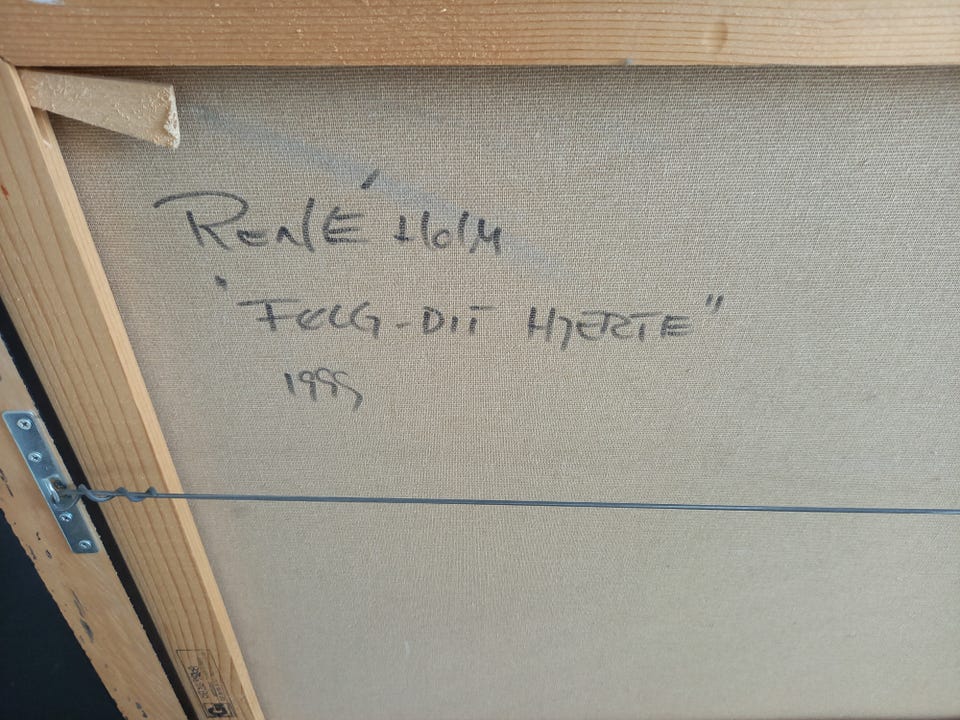 RENÉ HOLM
"FØLG-DIT HJERTE"
1999